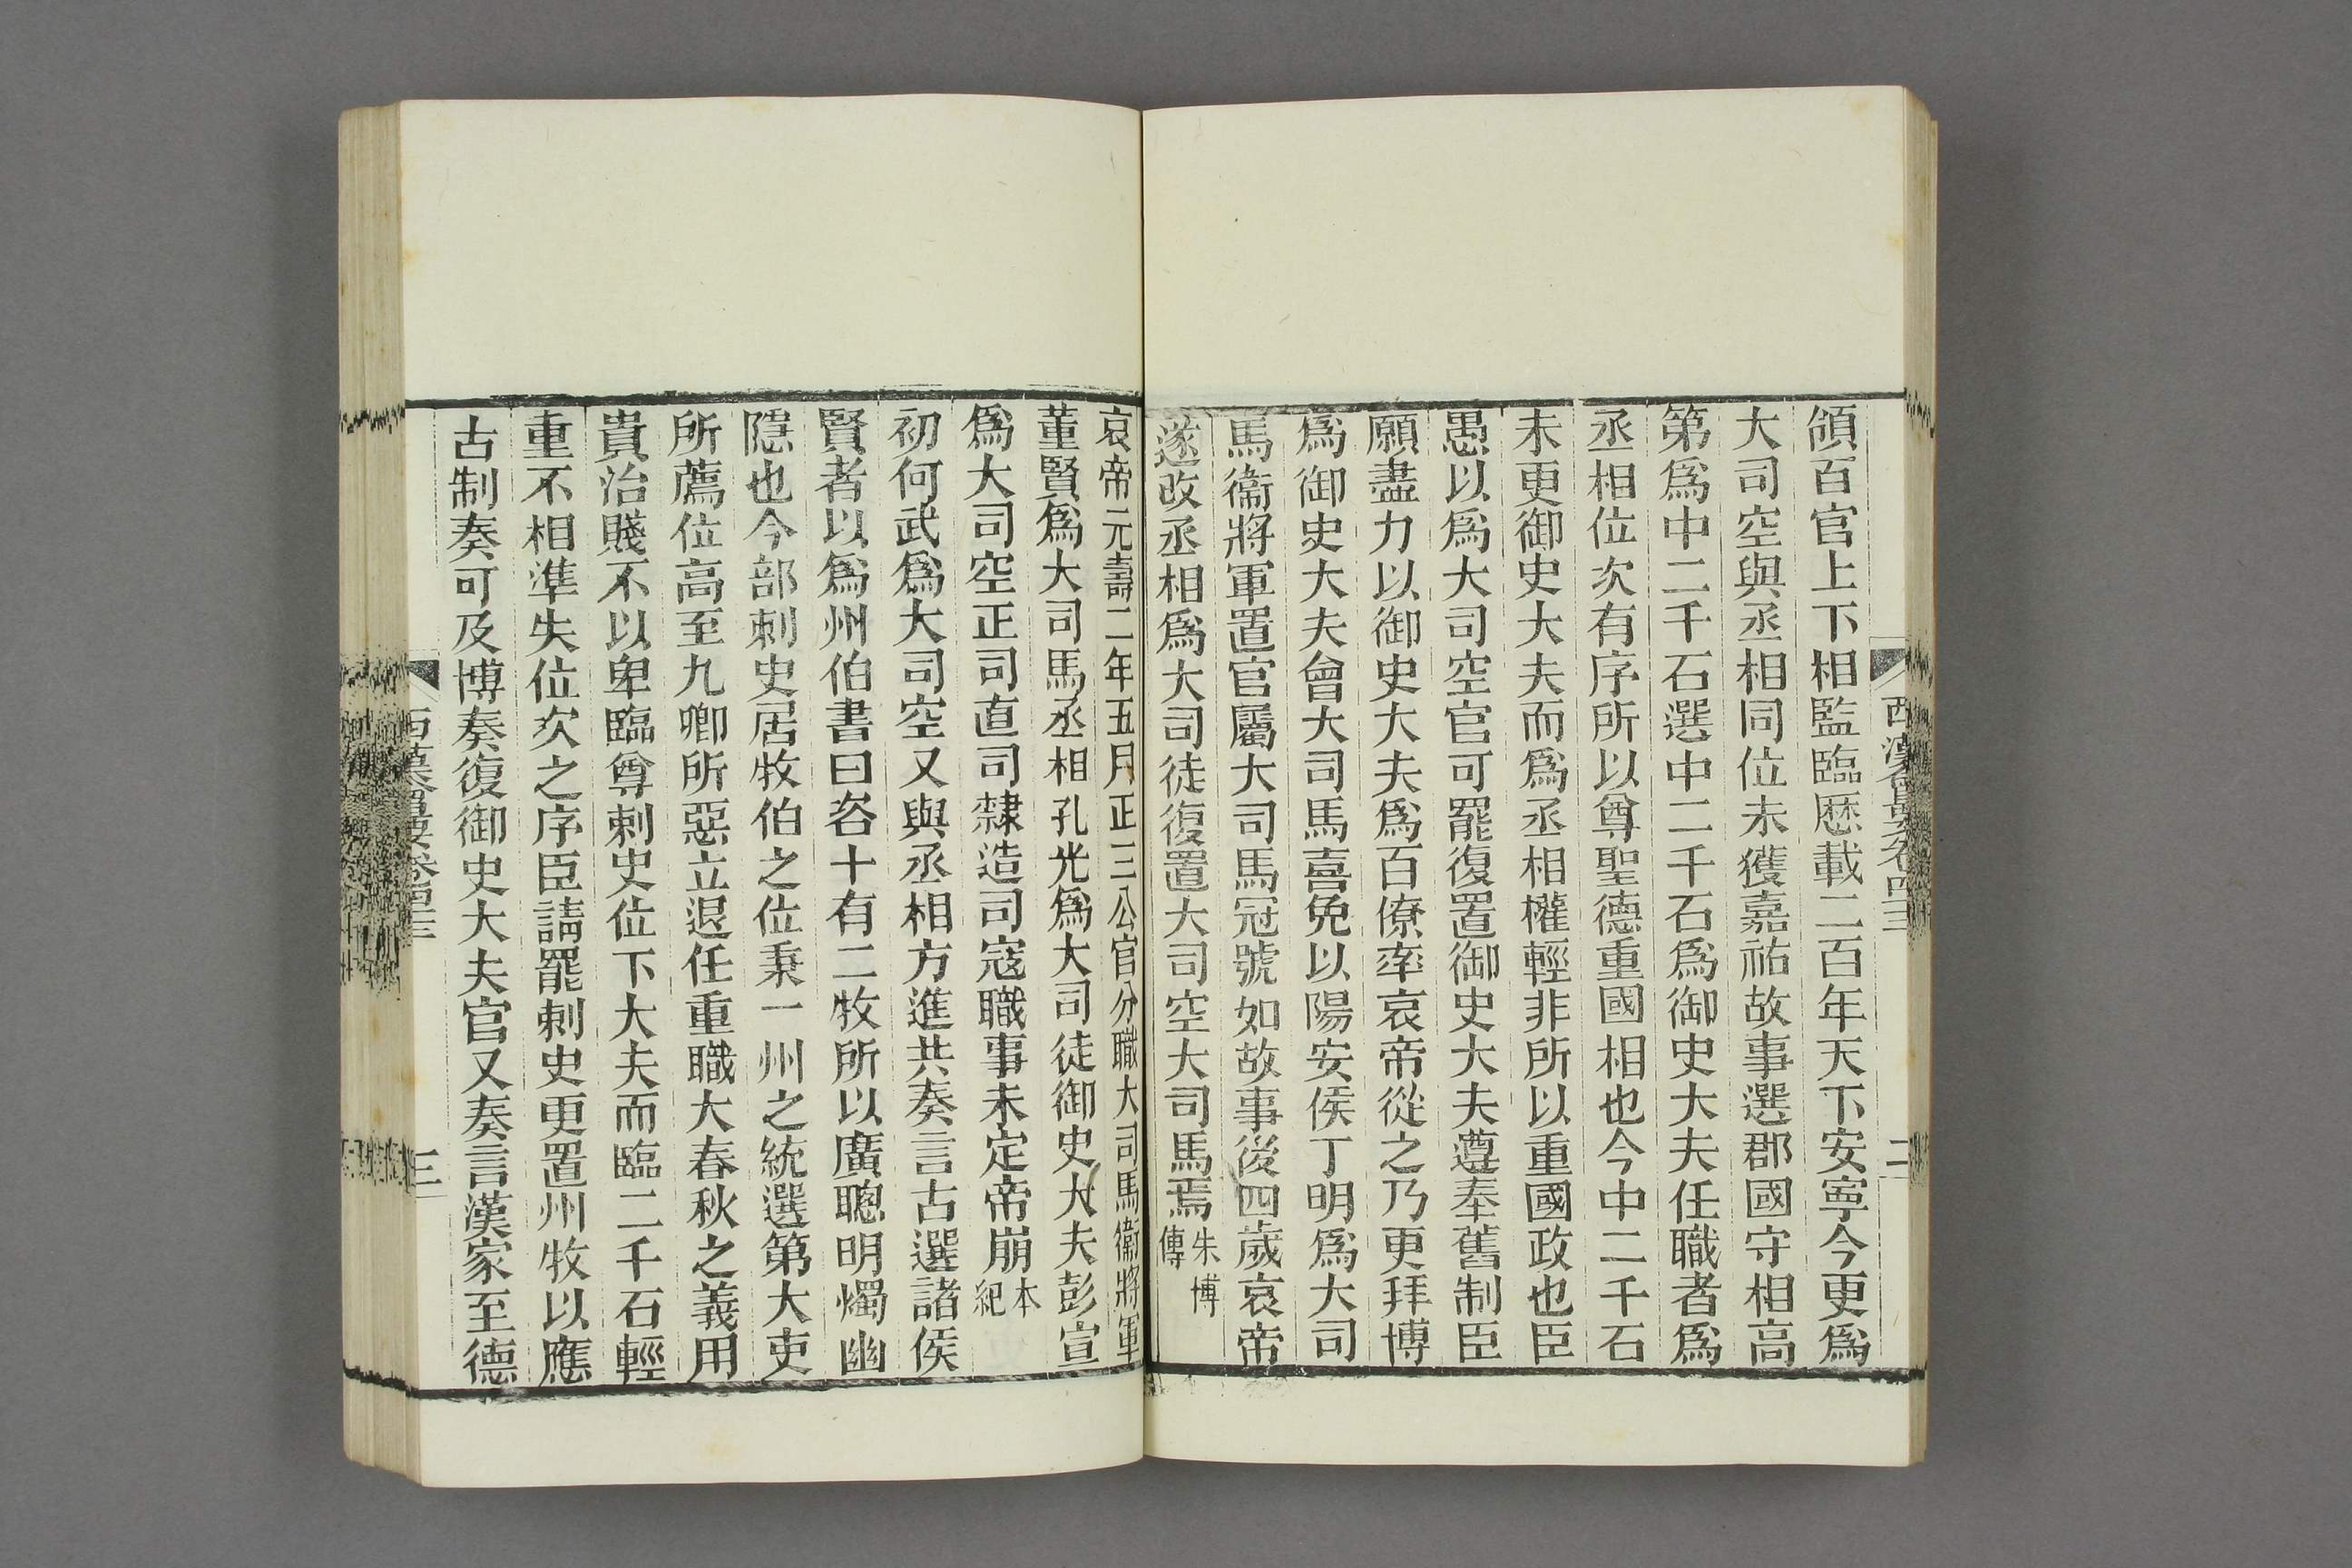 領百官上下相監臨歷載二百年天下安寧今更爲
大司空與丞相同位未獲嘉祐故事選郡國守相高
第爲中二千石選中二千石爲御史大夫任職者爲
丞相位次有序所以尊聖德重國相也今中二千石
未更御史大夫而爲丞相權輕非所以重國政也臣
愚以爲大司空官可罷復置御史大夫遵奉舊制臣
願盡力以御史大夫爲百僚率哀帝從之乃更拜博
爲御史大夫會大司馬喜免以陽安侯丁明爲大司
馬衞將軍置官屬大司馬冠號如故事後四歲哀帝
遂改丞相爲大司徒復置大司空大司馬焉朱博傳
哀帝元壽二年五月正三公官分職大司馬衞將軍
董賢爲大司馬丞相孔光爲大司徒御史大夫彭宣
爲大司空正司直司隸造司寇職事未定帝崩本紀
初何武爲大司空又與丞相方進共奏言古選諸侯
賢者以爲州伯書曰咨十有二牧所以廣聰明燭幽
隱也今部刺史居牧伯之位秉一州之統選第大吏
所薦位高至九卿所惡立退任重職大春秋之義用
貴治賤不以卑臨尊刺史位下大夫而臨二千石輕
重不相準失位次之序臣請罷刺史更置州牧以應
古制奏可及博奏復御史大夫官又奏言漢家至德
西漢會要卷四三
三